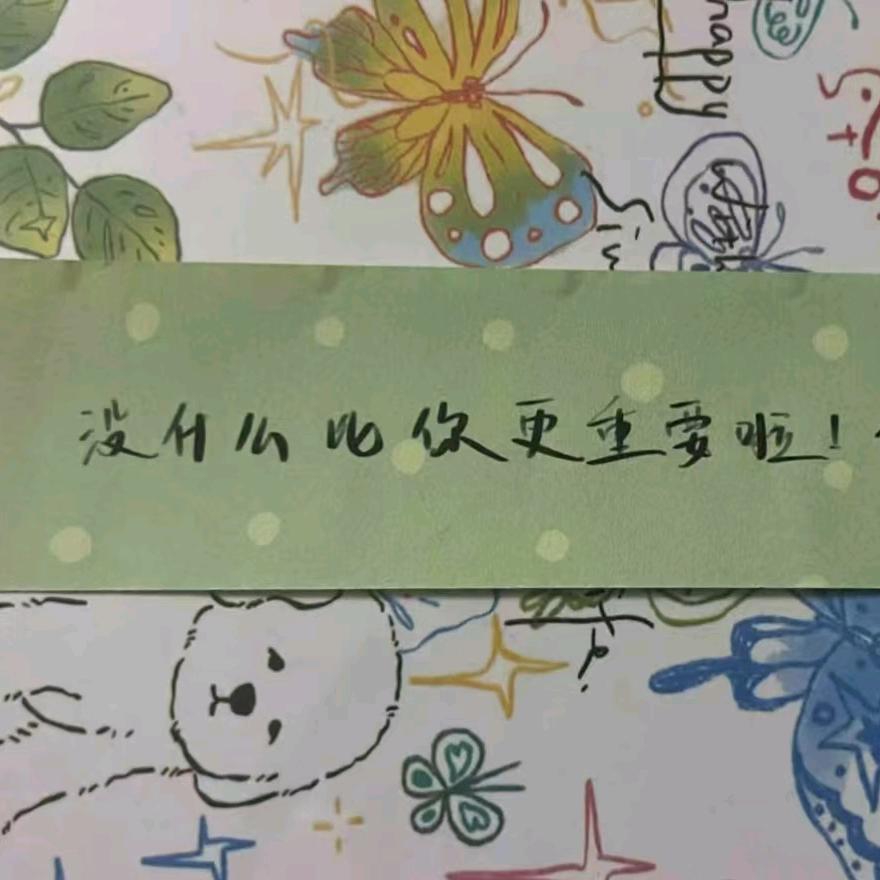 happy
没什么比你更重要啦！